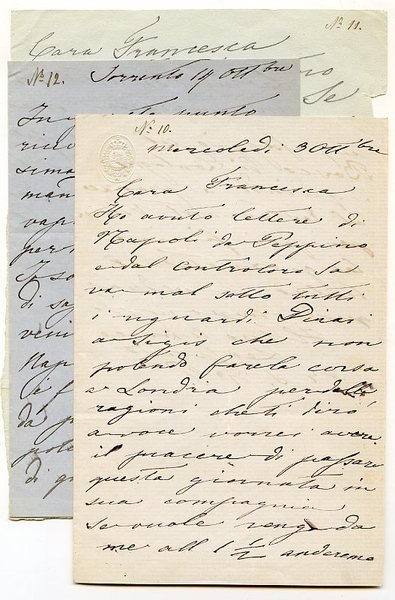 No. 11.
Cara Francesca
Se
No. 12.
Sorrento 14 Ottbre
In questo punto
rice
sima
man
vap
per
I so
di sa
veni
Nap
è f
da p
pote
di g
No. 10.
mercoledì 3 Ottbre
Cara Francesca
Ho avuto lettere di
Napoli da Peppino
e dal controloro la
va mal sotto tutti
i riguardi. Dirai
a Sigis che non
potendo fare la corsa
a Londra per
ragioni che ti dirò
a voce vorrei avere
il piacere di passare
questa giornata in
sua compagnia
Se vuole venga da
me all 1 1/2 anderemo